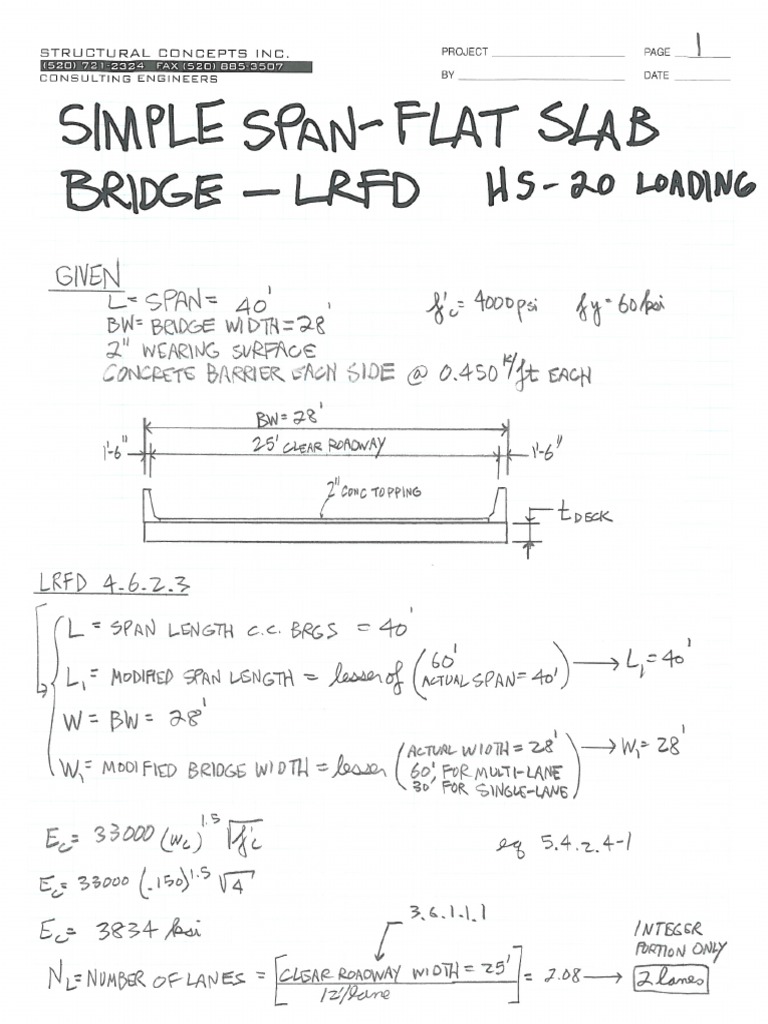 STRUCTURAL CONCEPTS INC.
(520) 721-2324 FAX (520) 885-3507
CONSULTING ENGINEERS
PROJECT
PAGE 1
BY
DATE
SIMPLE SPAN-FLAT SLAB
BRIDGE - LRFD HS-20 LOADING
GIVEN
L= SPAN= 40'
f'c= 4000psi fy= 60ksi
BW= BRIDGE WIDTH= 28'
2" WEARING SURFACE
CONCRETE BARRIER EACH SIDE @ 0.450 K/ft EACH
BW= 28'
1'-6" 25' CLEAR ROADWAY 1'-6"
2" CONC TOPPING
tDECK
LRFD 4.6.2.3
L = SPAN LENGTH C.C. BRGS = 40'
L1 = MODIFIED SPAN LENGTH = lesser of (60' ACTUAL SPAN= 40') → L1= 40'
W = BW = 28'
W1= MODIFIED BRIDGE WIDTH = lesser (ACTUAL WIDTH = 28' → W1= 28'
60', FOR MULTI-LANE
30', FOR SINGLE-LANE)
Ec= 33000 (wc)^1.5 √f'c eq 5.4.2.4-1
Ec= 33000 (.150)^1.5 √4
Ec= 3834 ksi
3.6.1.1.1
INTEGER
PORTION ONLY
NL= NUMBER OF LANES = [CLEAR ROADWAY WIDTH = 25' / 12'/lane] = 2.08 → 2 lanes